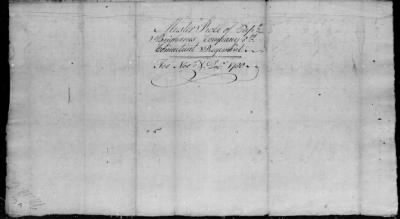 Muster Roll of Capt
Company 5th
Connecticut Regiment
For Novr & Decr 1780